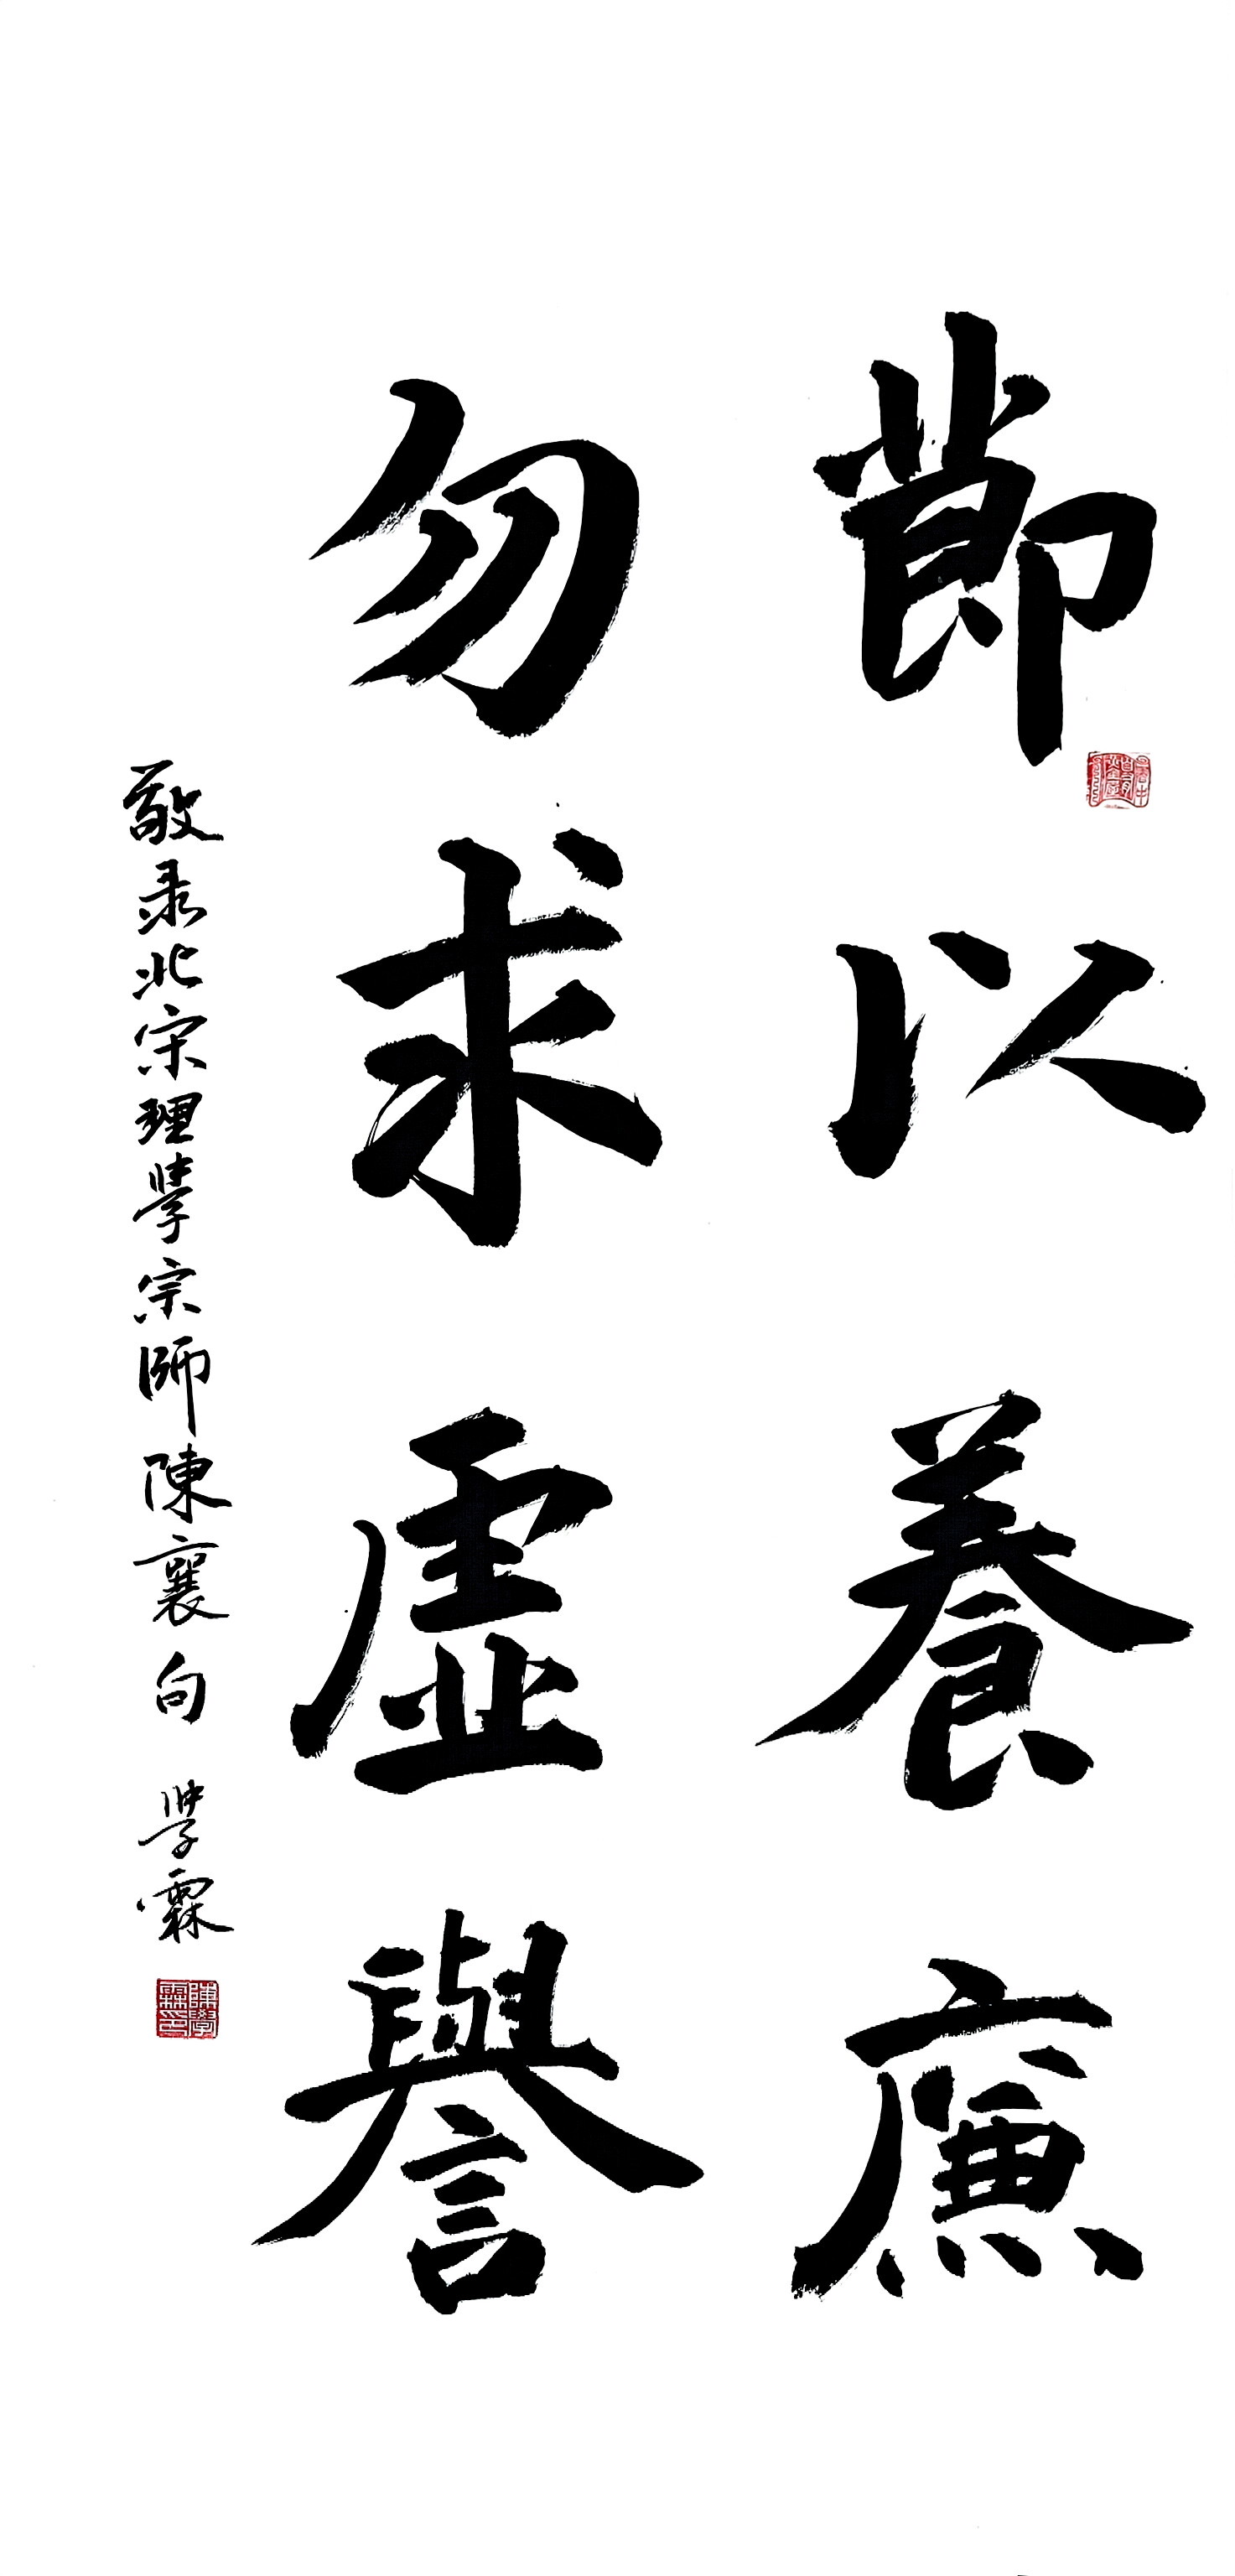 節以養廉
勿求虛譽
敬录北宋理學宗師陳襄句 學霖
陳學霖印